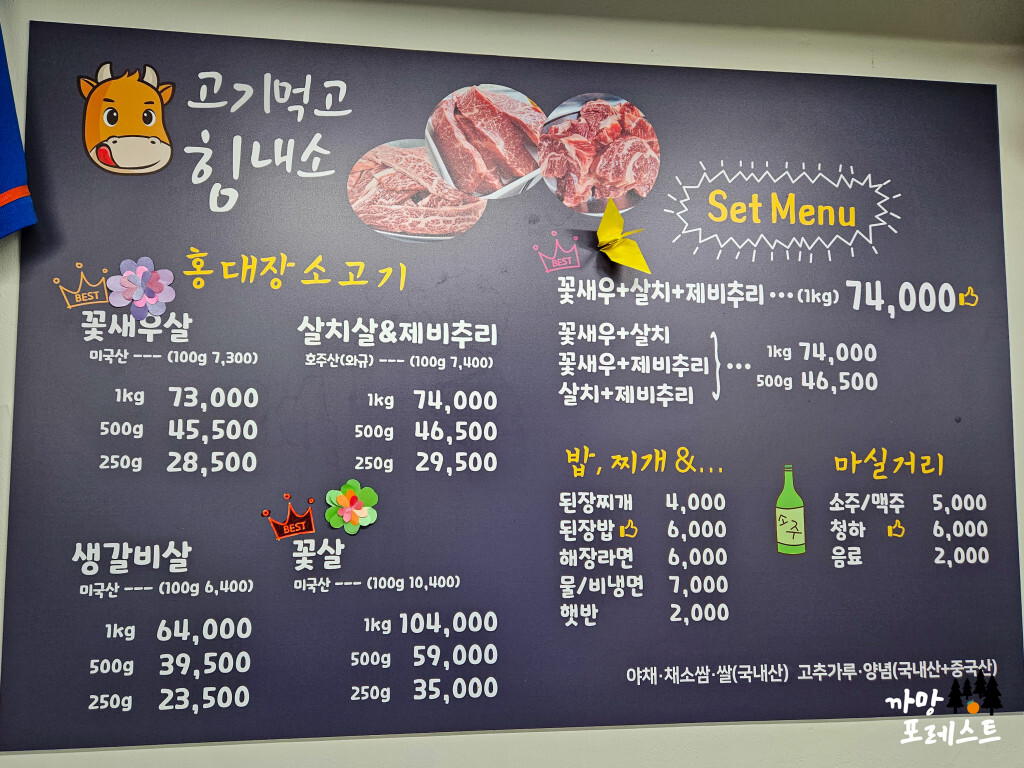 고기먹고
힘내소
홍대장소고기
BEST
꽃새우살
미국산 --- (100g 7,300)
1kg 73,000
500g 45,500
250g 28,500
살치살&제비추리
호주산(와규) --- (100g 7,400)
1kg 74,000
500g 46,500
250g 29,500
생갈비살
미국산 --- (100g 6,400)
1kg 64,000
500g 39,500
250g 23,500
BEST
꽃살
미국산 --- (100g 10,400)
1kg 104,000
500g 59,000
250g 35,000
Set Menu
BEST
꽃새우+살치+제비추리 ···(1kg) 74,000
꽃새우+살치
꽃새우+제비추리
살치+제비추리
··· 1kg 74,000
500g 46,500
밥, 찌개 &...
된장찌개 4,000
된장밥 6,000
해장라면 6,000
물/비냉면 7,000
햇반 2,000
소주
마실거리
소주/맥주 5,000
청하 6,000
음료 2,000
야채·채소쌈·쌀(국내산) 고추가루·양념(국내산+중국산)
까망
포레스트